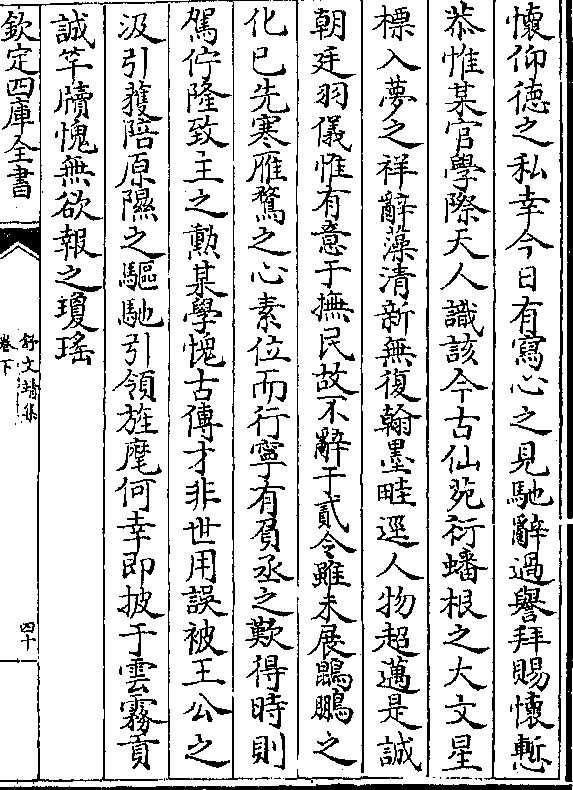 懷仰徳之私幸今日有寫心之見馳辭過譽拜賜懷慙
恭惟某官學際天人識該今古仙苑衍蟠根之大文星
標入夢之祥辭藻清新無復翰墨畦逕人物超邁是誠
朝廷羽儀惟有意于撫民故不辭于貳令雖未展鵾鵬之
化已先寒雁鶩之心素位而行寧有負丞之歎得時則
駕佇隆致主之勲某學愧古傳才非世用誤被王公之
汲引獲陪原隰之驅馳引領旌麾何幸即披于雲霧貢
誠竿牘愧無欲報之瓊瑤
欽定四庫全書
舒文靖集
卷下
四十